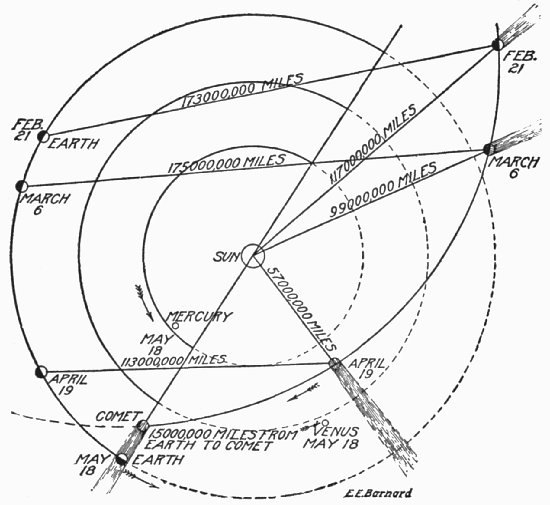 FEB.
21
173000,000 MILES
FEB.
21
EARTH
117000,000 MILES
175000,000 MILES
MARCH
6
MARCH
6
99000,000 MILES
SUN
57000,000 MILES
MERCURY
MAY
18
113000,000 MILES.
APRIL
19
APRIL
19
COMET
15000,000 MILES FROM
EARTH TO COMET
VENUS
MAY 18
MAY
18
EARTH
E.E. Barnard